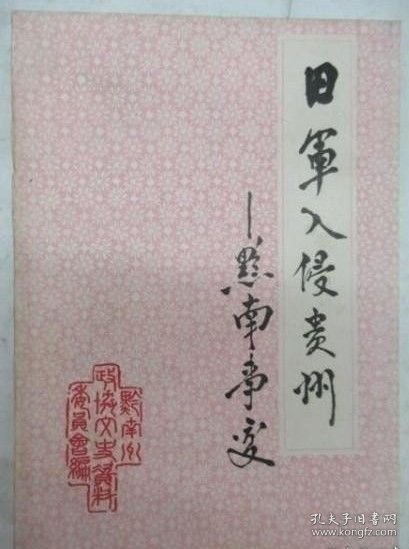 日軍入侵贵州
—黔南事变
黔南州
政协文史资料
委員會編
孔夫子旧书网
www.kongfz.com